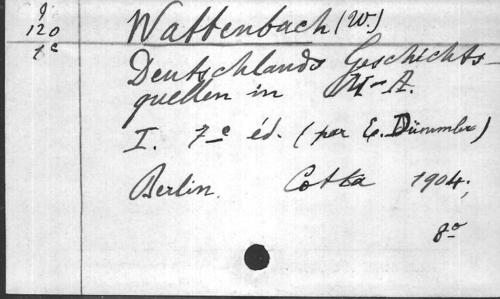 9.
120
7e
Wattenbach (W.)
Deutschlands Geschichts-
quellen in M-A.
I. 7e éd. (par E. Dümmler)
Berlin. Cotta 1904.
8o